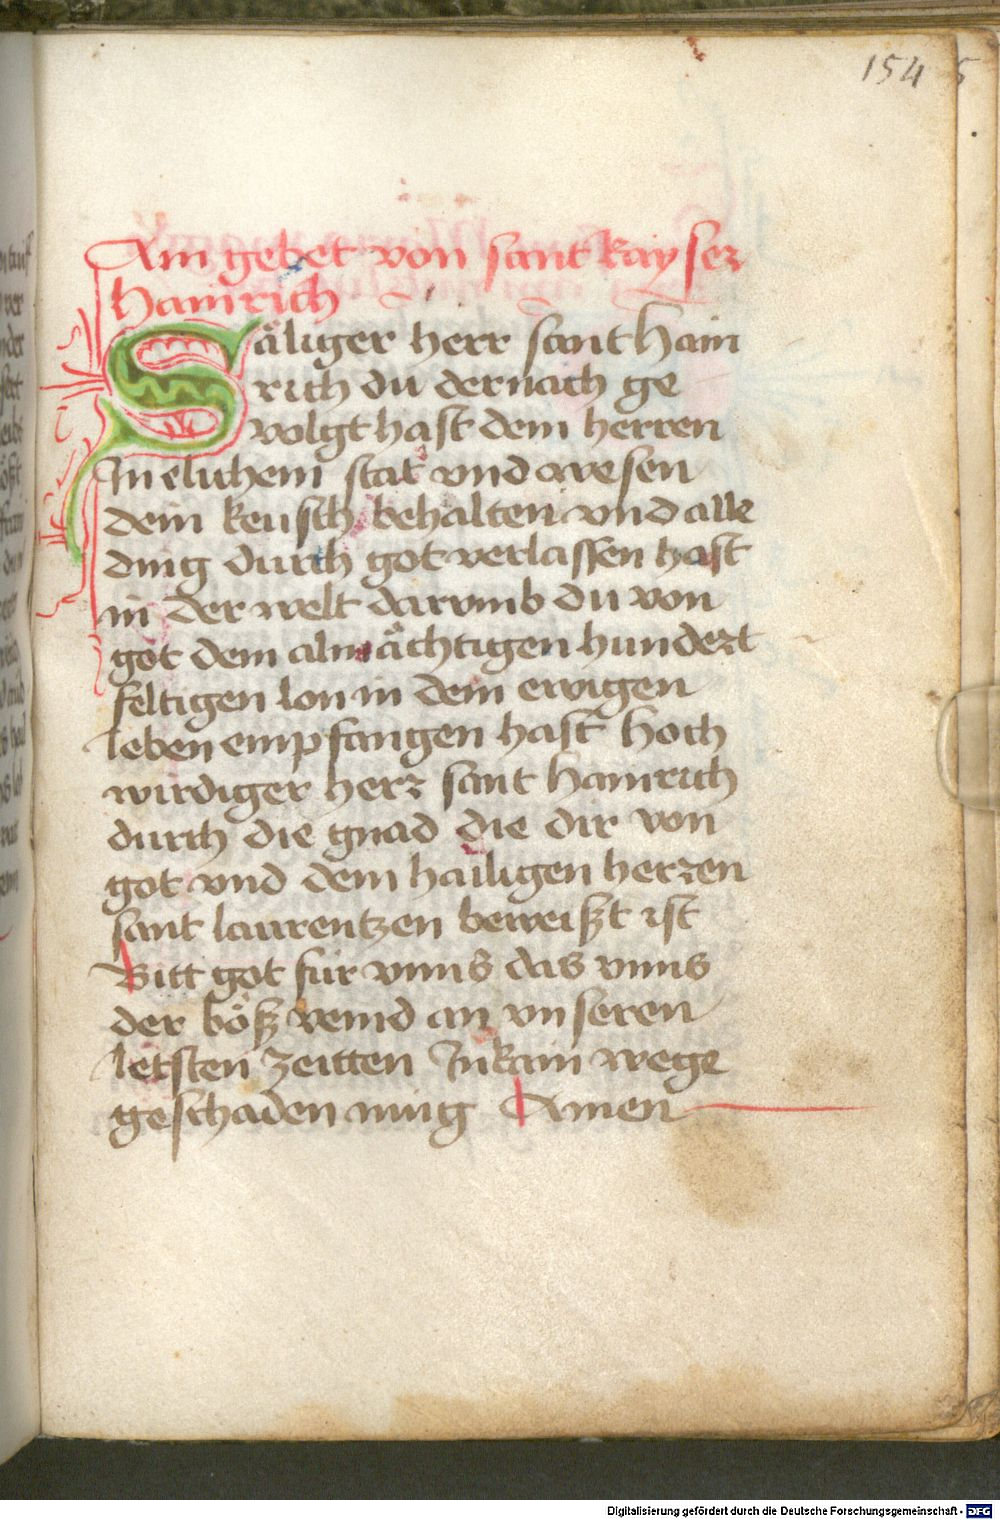 154
Ain gebet von sant kayser
hainrich
Säliger herr sant hain
rich du dernach ge
volgt hast dem herren
In elichem stat vnd wesen
dein keusch behalten vnd alle
ding durch got verlassen hast
in der welt darumb du von
got dem almächtigen hundert
feltigen lon in dem ewigen
leben empfangen hast Hoch
wirdiger herr sant hainrich
durch die gnad die dir von
got vnd dem hailigen herren
sant laurentzen beweißt ist
Bitt got für vnns das vnns
der böß veind an vnseren
letsten zeitten In kain wege
geschaden mug Amen
Digitalisierung gefördert durch die Deutsche Forschungsgemeinschaft - DFG